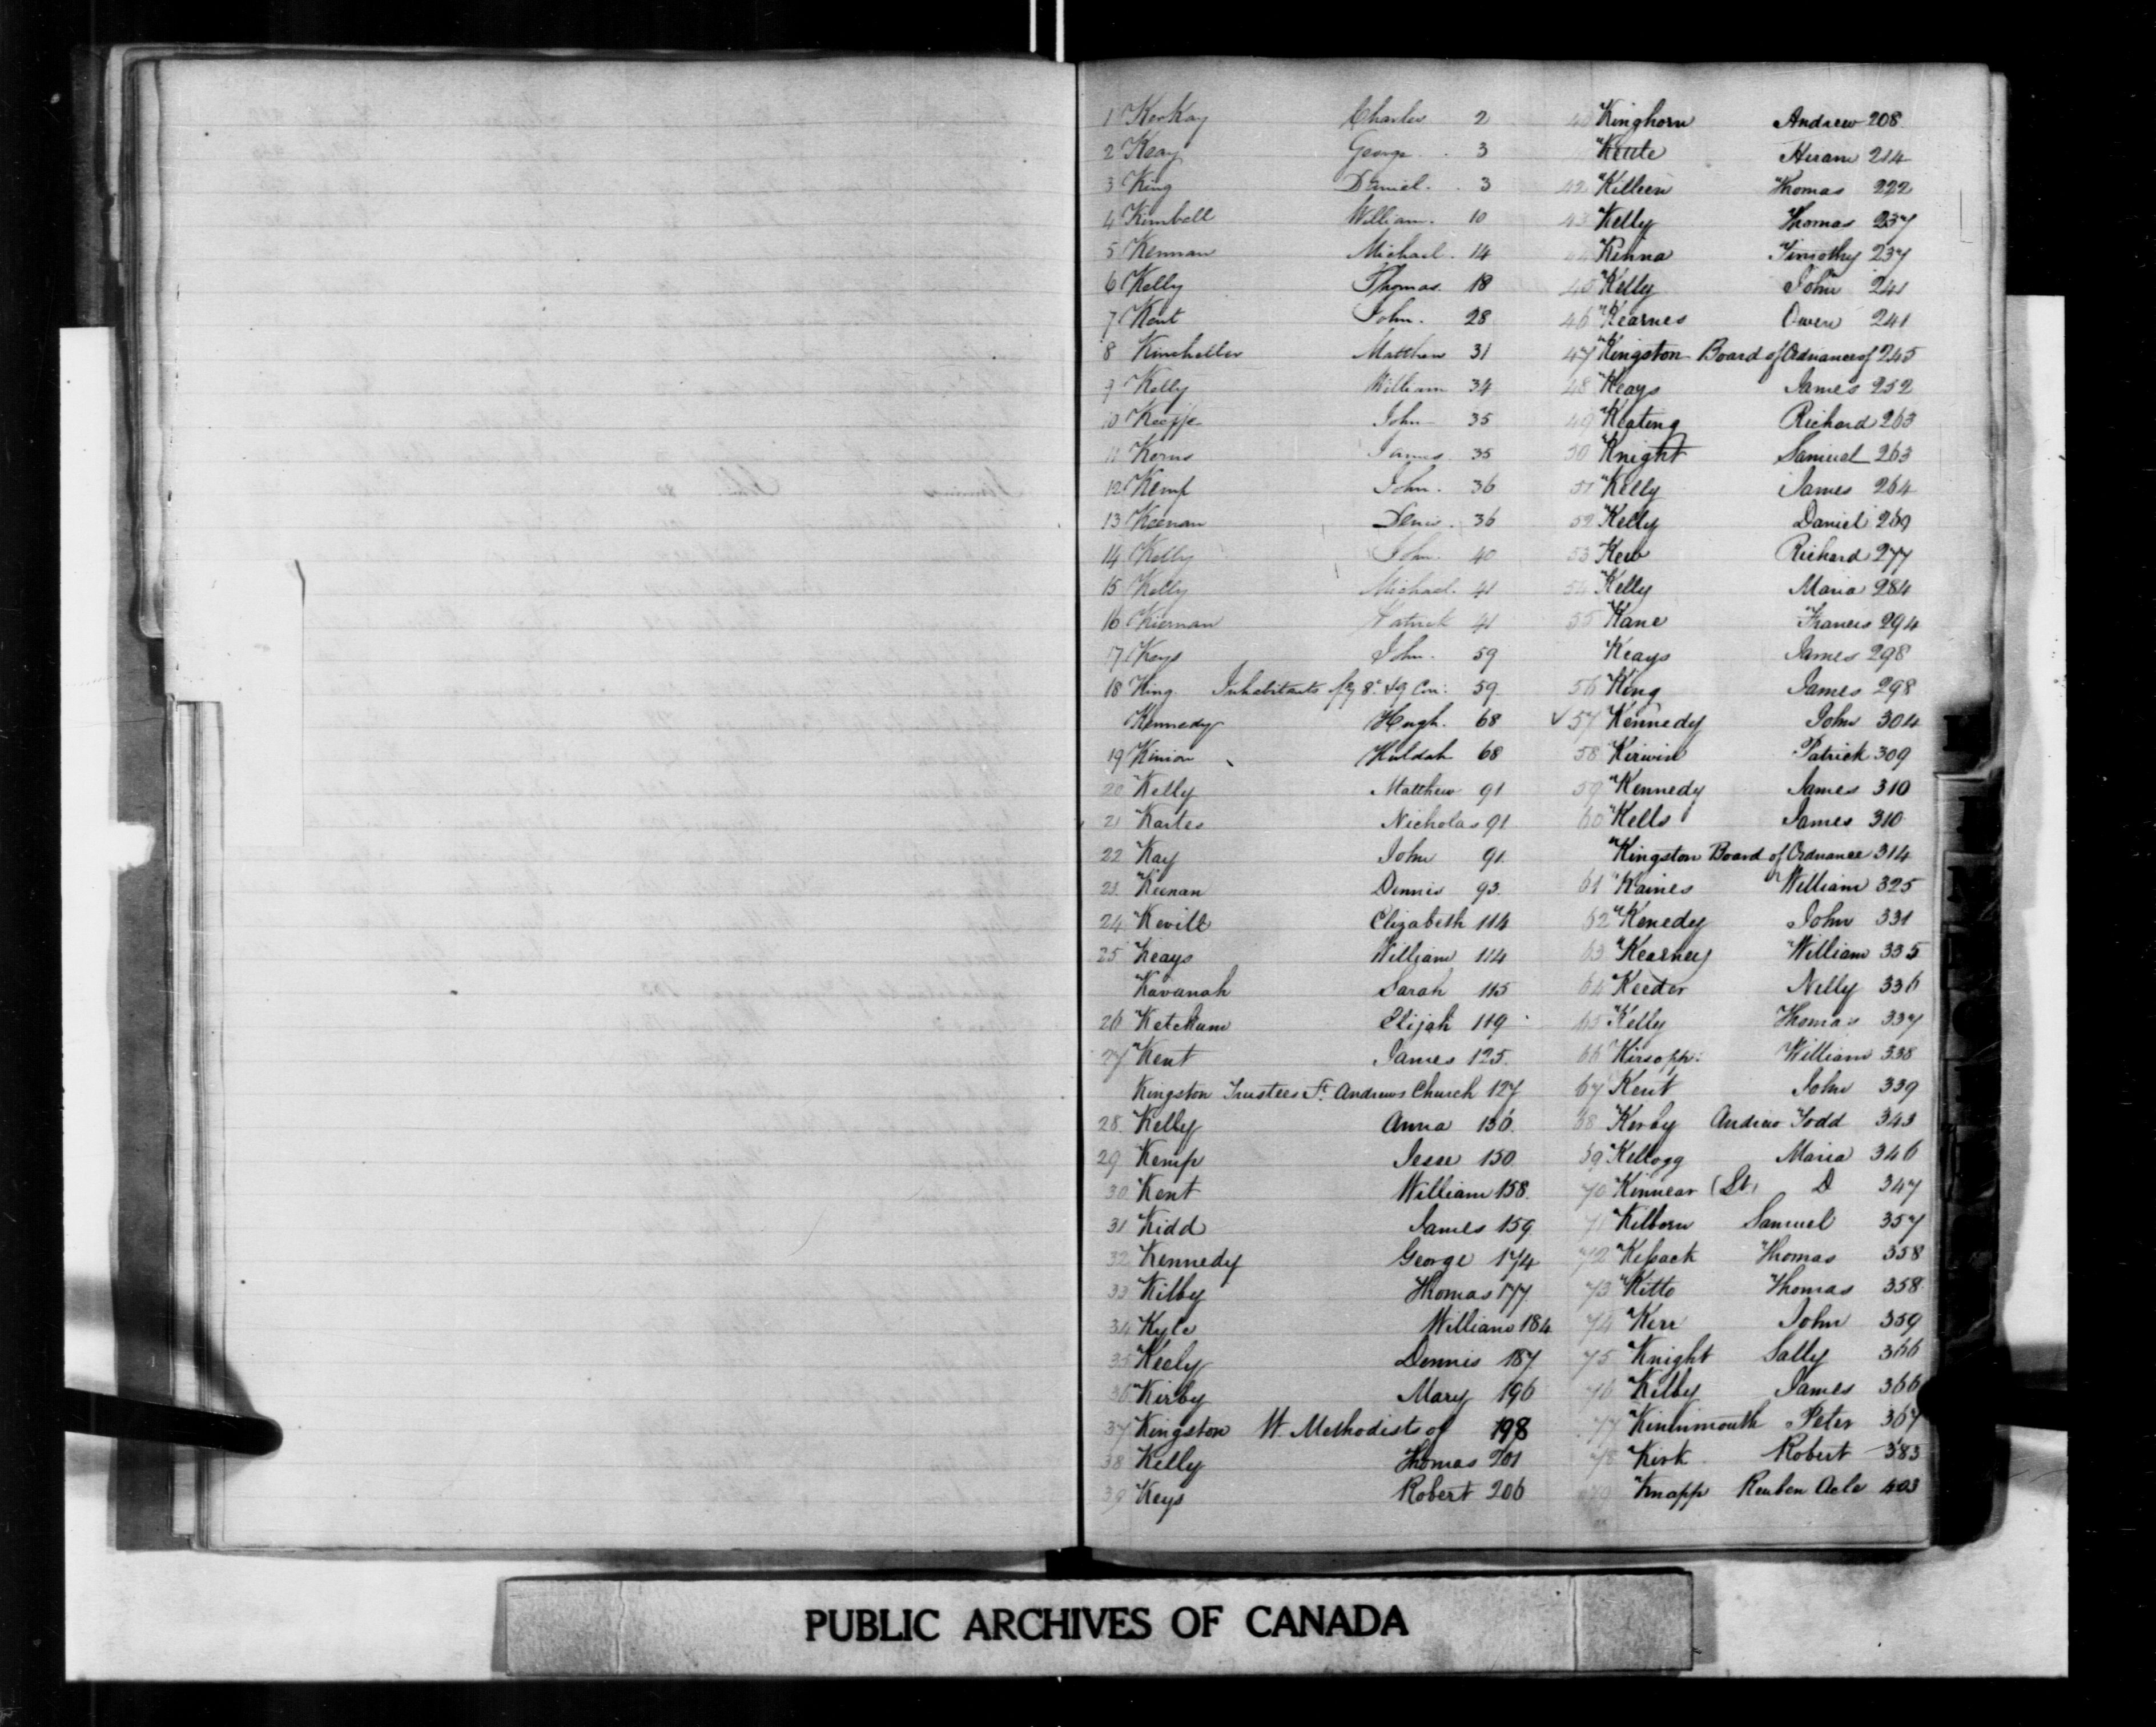 1 KerKay Charles 2
2 Keay George 3
3 King Daniel 3
4 Kimbell William 10
5 Kennan Michael 14
6 Kelly Thomas 18
7 Kent John 28
8 Kinchellor Matthew 31
9 Kelly William 34
10 Keoffe John 35
11 Kerns James 35
12 Kemp John 36
13 Keenan Denis 36
14 Kelly John 40
15 Kelly Michael 41
16 Kiernan Patrick 41
17 Keys John 59
18 King Inhabitants of 8th & 9 Con: 59
Kennedy Hugh 68
19 Kinion Huldah 68
20 Kelly Matthew 91
21 Kartes Nicholas 91
22 Kay John 91
23 Keenan Dennis 93
24 Kevill Elizabeth 114
25 Keays William 114
Kavanah Sarah 115
26 Ketchum Elijah 119
27 Kent James 125
Kingston Trustees St Andrews Church 127
28 Kelly Anna 136
29 Kemp Jesse 150
30 Kent William 158
31 Kidd James 159
32 Kennedy George 174
33 Kilby Thomas 177
34 Kyle William 184
35 Keely Dennis 187
36 Kirby Mary 196
37 Kingston W. Methodists of 198
38 Kelly Thomas 201
39 Keys Robert 206
40 Kinghorn Andrew 208
Hiram 214
42 Killeen Thomas 222
43 Kelly Thomas 237
44 Kenna Timothy 237
45 Kelly John 241
46 Kearnes Owen 241
47 Kingston Board of Ordnance of 245
48 Keays James 252
49 Keating Richard 263
50 Knight Samuel 263
51 Kelly James 264
52 Kelly Daniel 269
53 Kew Richard 277
54 Kelly Maria 284
55 Kane Francis 294
Keays James 298
56 King James 298
✓ 57 Kennedy John 304
58 Kirwin Patrick 309
59 Kennedy James 310
60 Kells James 310
Kingston Board of Ordnance of 314
61 Kaines William 325
62 Kenedy John 331
63 Kearney William 335
64 Keeder Nelly 336
65 Kelly Thomas 337
66 Kirsopp: William 338
67 Kent John 339
68 Kerby Andrew Todd 343
69 Kellogg Maria 346
70 Kinnear (Lt) D 347
71 Kilborn Samuel 357
72 Kessack Thomas 358
73 Kitto Thomas 358
74 Kerr John 359
75 Knight Sally 366
76 Kilby James 366
77 Kininmouth Peter 367
78 Kirk Robert 383
79 Knapp Reuben Acle 403
PUBLIC ARCHIVES OF CANADA